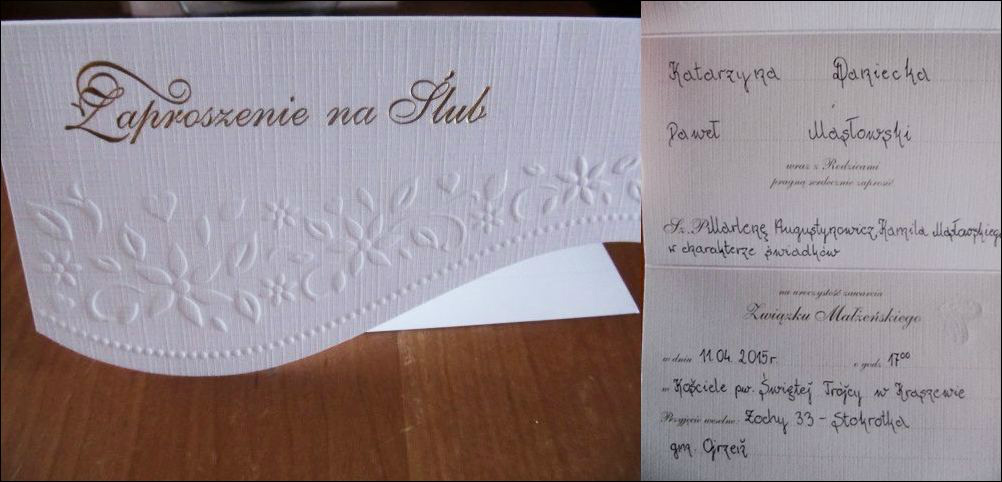 Zaproszenie na Ślub
Katarzyna Daniecka
Paweł Masłowski
wraz z Rodzicami
pragną serdecznie zaprosić
Sz. P. Marlenę Augustynowicz, Kamila Masłowskiego
w charakterze świadków
na uroczystość zawarcia
Związku Małżeńskiego
w dniu 11.04.2015r. o godz. 17⁰⁰
w Kościele pw. Świętej Trójcy w Kraszewie
Przyjęcie weselne: Żochy 33 - Stokrotka
gm. Ojrzeń